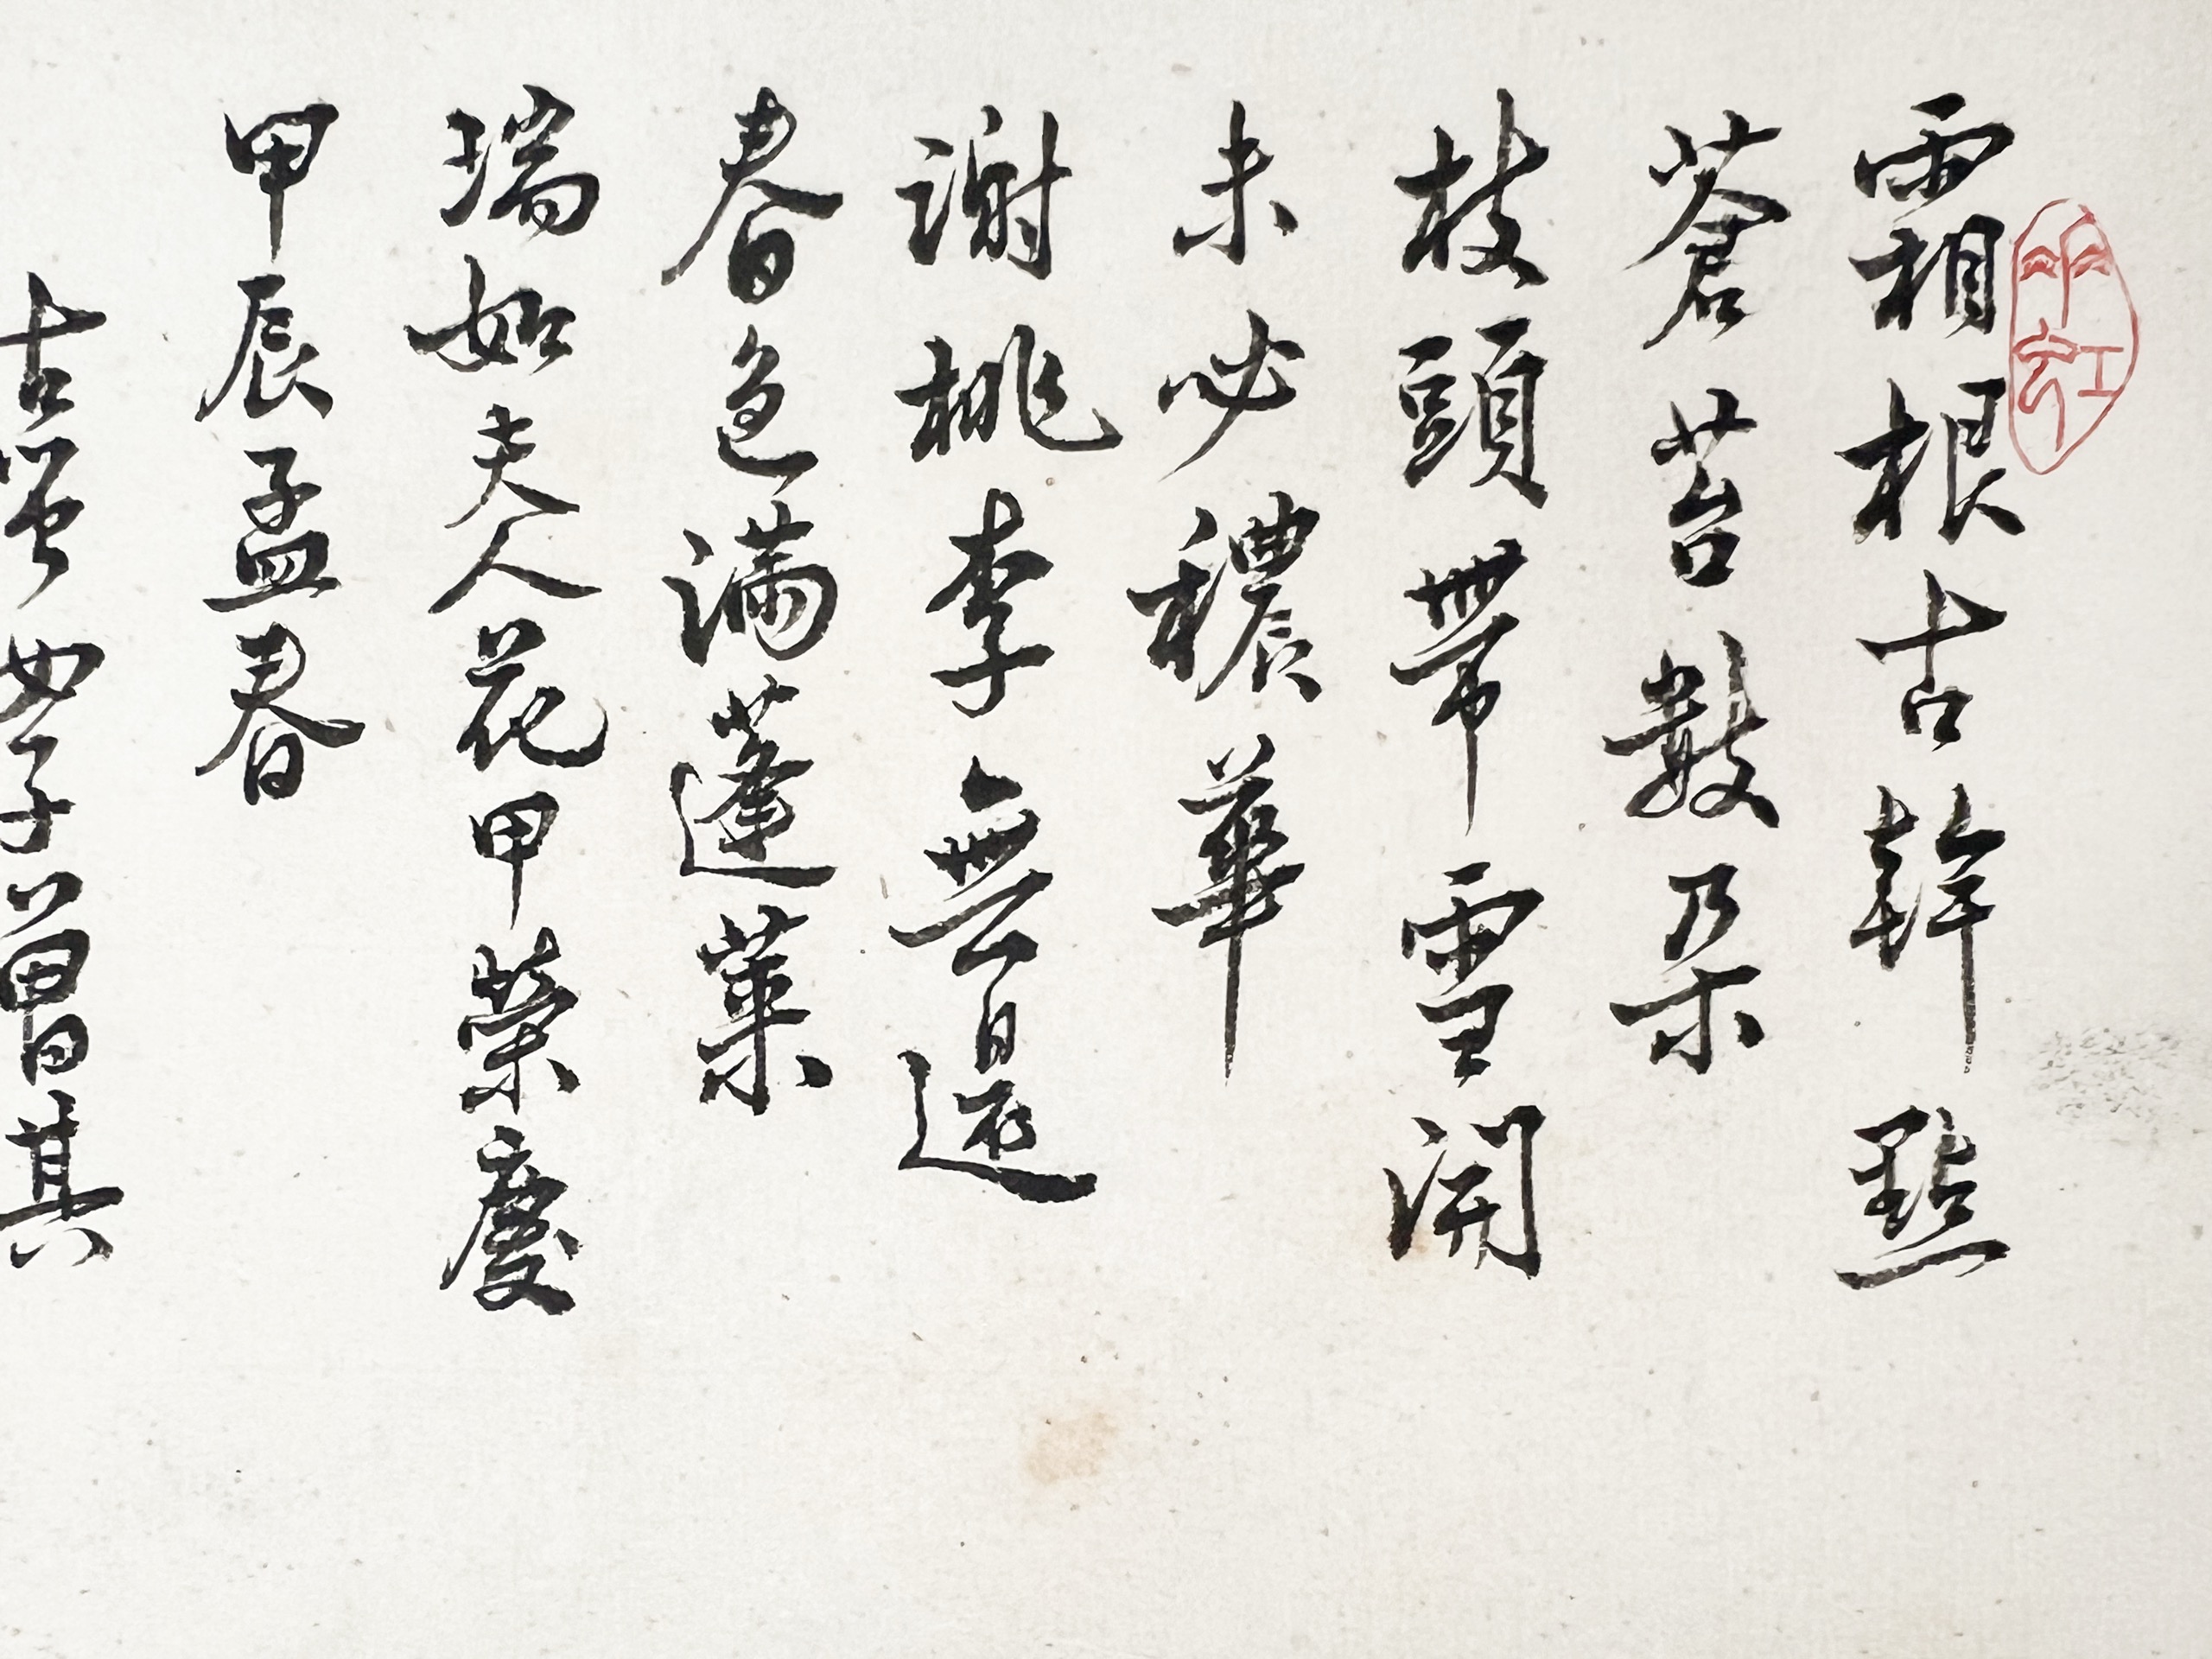 霜根古幹點
蒼苔數朵
枝頭帶雪開
未必穠華
謝桃李無邊
春色滿蓬萊
瑞如夫人花甲榮慶
甲辰孟春
古 女子曾其